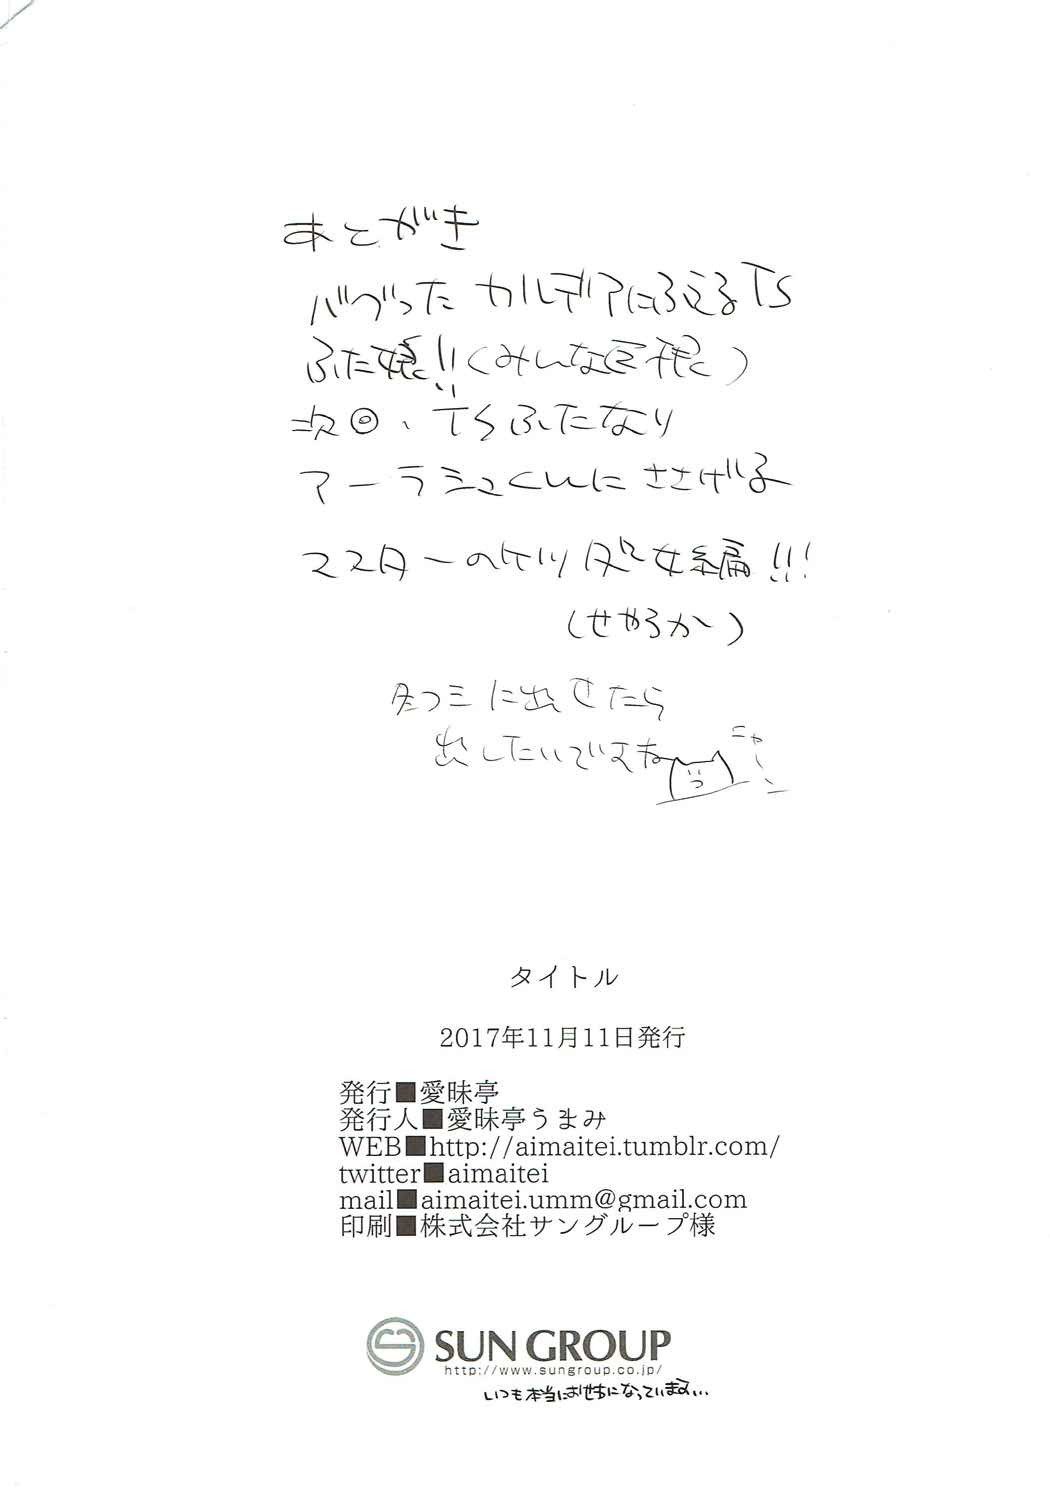 あとがき
バグったカルデアにふえるTS
ふた娘!!(みんな巨根)
次回、TSふたなり
アーラシュくんにささげる
マスターのケツ処女編!!!
(せやろか)
冬コミに出せたら
出したいですね
ニャーン
タイトル
2017年11月11日発行
発行■愛昧亭
発行人■愛昧亭うまみ
WEB■http://aimaitei.tumblr.com/
twitter■aimaitei
mail■aimaitei.umm@gmail.com
印刷■株式会社サングループ様
SUN GROUP
http://www.sungroup.co.jp/
いつも本当にお世話になっています…